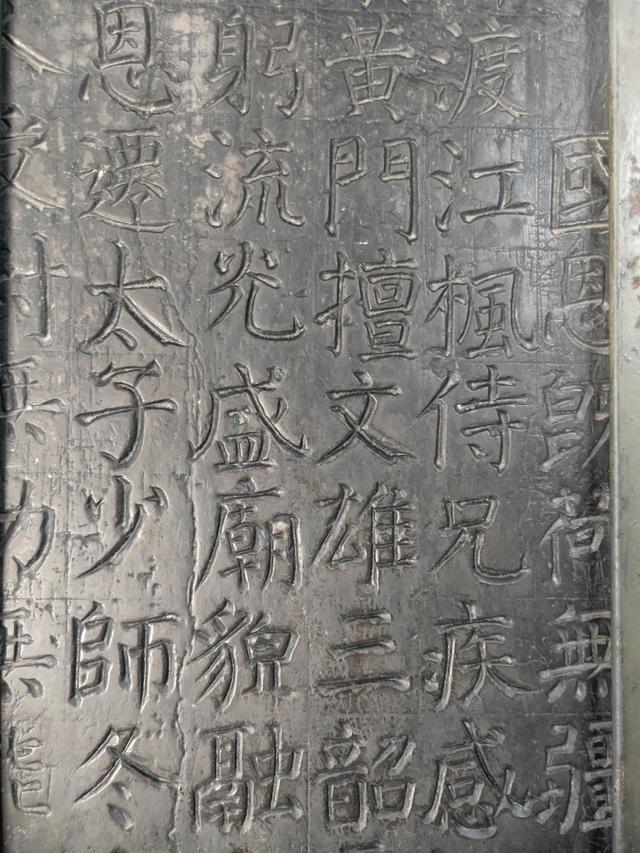 國恩荷無疆
渡江楓侍兄疾感
黄門擅文雄三韶
躬流光盛廟貌融
恩遷太子少師冬
無力無